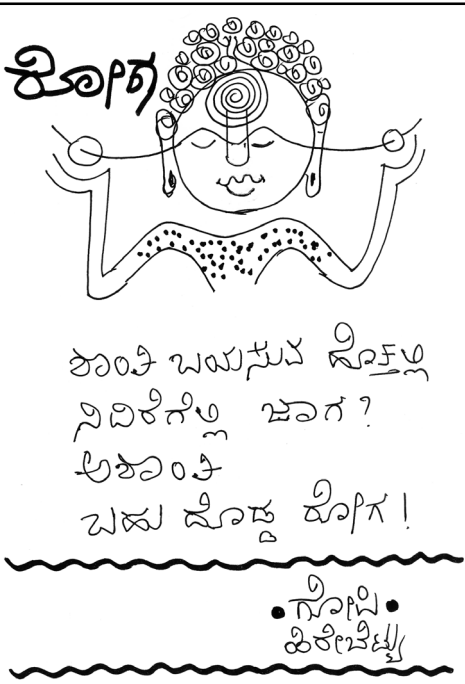 ರೋಗ
ಶಾಂತಿ ಬಯಸುವ ಹೊತ್ತಲ್ಲಿ
ನಿದಿರೆಗೆಲ್ಲಿ ಜಾಗ?
ಅಶಾಂತಿ
ಬಹು ದೊಡ್ಡ ರೋಗ!
•ಗೋಪಿ•
ಹಿರೇಬೆಟ್ಟು